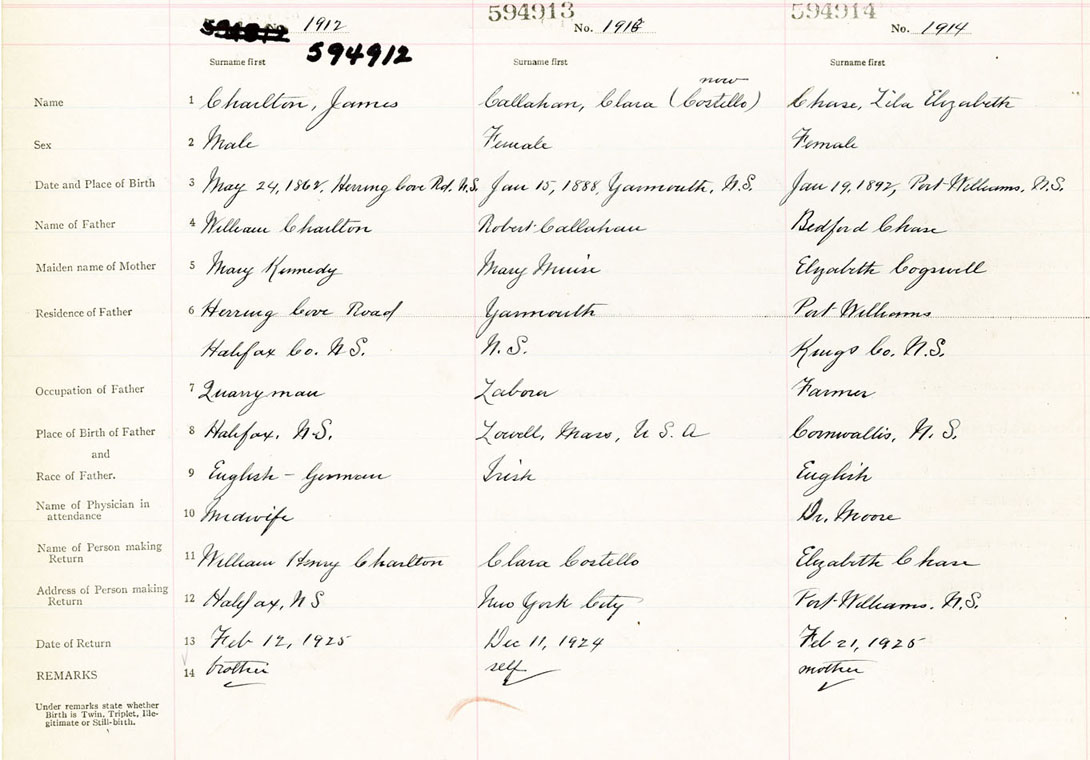 594912 1912 594913 No. 1913 594914 No. 1914
594912
Surname first Surname first Surname first
now
Name 1 Charlton, James Callahan, Clara (Costello) Chase, Lila Elizabeth
Sex 2 Male Female Female
Date and Place of Birth 3 May 24, 1862, Herring Cove Rd. N.S. Jan 15, 1888, Yarmouth, N.S. Jan 19, 1892, Port Williams, N.S.
Name of Father 4 William Charlton Robert Callahan Bedford Chase
Maiden name of Mother 5 Mary Kennedy Mary Muise Elizabeth Cogswell
Residence of Father 6 Herring Cove Road Yarmouth Port Williams
Halifax Co. N.S. N.S. Kings Co. N.S.
Occupation of Father 7 Quarryman Laborer Farmer
Place of Birth of Father 8 Halifax, N.S. Lowell, Mass, U S A Cornwallis, N.S.
and
Race of Father. 9 English - German Irish English
Name of Physician in
attendance 10 Midwife Dr. Moore
Name of Person making
Return 11 William Henry Charlton Clara Costello Elizabeth Chase
Address of Person making
Return 12 Halifax, N S New York City Port Williams. N.S.
Date of Return 13 Feb 12, 1925 Dec 11, 1924 Feb 21, 1925
REMARKS 14 brother self mother
Under remarks state whether
Birth is Twin, Triplet, Ille-
gitimate or Still-birth.